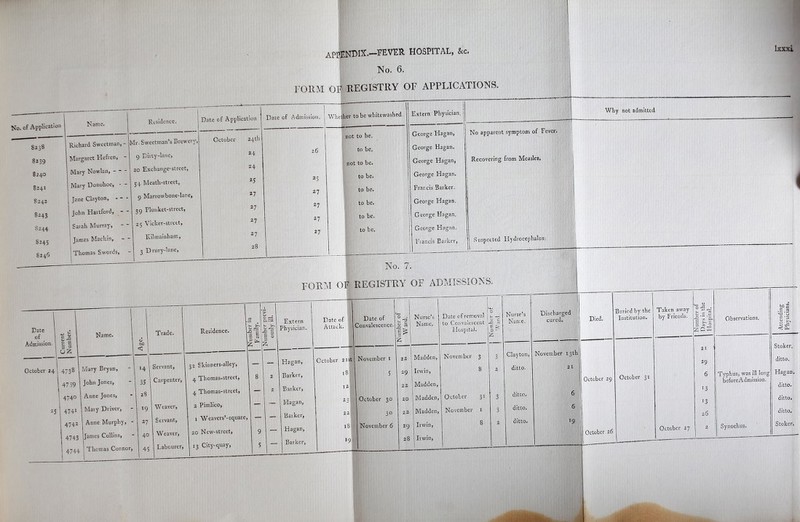 APPENDIX.—FEVER HOSPITAL, &c. lxxxi
No. 6.
FORM OF REGISTRY OF APPLICATIONS.
No. of Application Name. Residence. Date of Application Date of Admission. Whether to be whitewashed. Extern Physician. Why not admitted
8238 Richard Sweetman, - Mr. Sweetman's Brewery, October 24th not to be. George Hagan, No apparent symptom of Fever.
8239 Margaret Hefren, - 9 Dirty-lane, 24 26 to be. George Hagan.
8240 Mary Nowlan, - - - 20 Exchange-street, 24 not to be. George Hagan, Recovering from Measles.
8241 Mary Donohoe, - - 54 Meath-street, 25 25 to be. George Hagan.
8242 Jane Clayton, - - - 9 Marrowbone-lane, 27 27 to be. Francis Barker.
8243 John Hartford, - - 39 Plunket-street, 27 27 to be. George Hagan.
8244 Sarah Murray, - - 25 Vicker-street, 27 27 to be. George Hagan.
8245 James Machin, - - Kilmainham, 27 27 to be. George Hagan.
8246 Thomas Swords, - 3 Drury-lane, 28 Francis Barker, Suspected Hydrocephalus.
No. 7.
FORM OF REGISTRY OF ADMISSIONS.
Date of Admission. Current Number. Name. Age. Trade. Residence. Number in Family. Number previously ill. Extern Physician. Date of Attack. Date of Convalescence. Number of Ward. Nurse's Name. Date of removal to Convalescent Hospital. Number of Ward. Nurse's Name. Discharged cured. Died. Buried by the Institution. Taken away by Friends. Number of Days in the Hospital. Observations. Attending Physicians.
October 24 4738 Mary Bryan, - 14 Servant, 32 Skinners-alley, — — Hagan, October 21st November 1 22 Madden, November 3 3 Clayton, November 13th 21 Stoker,
4739 John Jones, - 35 Carpenter, 4 Thomas-street, 8 2 Barker, 18 5 29 Irwin, 8 2 ditto. 21 29 ditto.
4740 Anne Jones, - 28 4 Thomas-street, 2 Barker, 12 22 Madden, October 29 October 31 6 Typhus, was ill long before Admission. Hagan,
25 4741 Mary Driver, - 19 Weaver, 2 Pimlico, — — Hagan, 23 October 30 20 Madden, October 31 3 ditto. 6 13 ditto.
4742 Anne Murphy, - 27 Servant, 1 Weavers'-square, — — Barker, 22 30 22 Madden, November 1 3 ditto. 6 13 ditto.
4743 James Collins, - 40 Weaver, 20 New-street, 9 — Hagan, 18 November 6 29 Irwin, 8 2 ditto. 19 26 ditto,
4744 Thomas Connor, 45 Labourer, 13 City-quay, 5 — Barker, 19 28 Irwin, October 26 October 27 2 Synochus. Stoker,